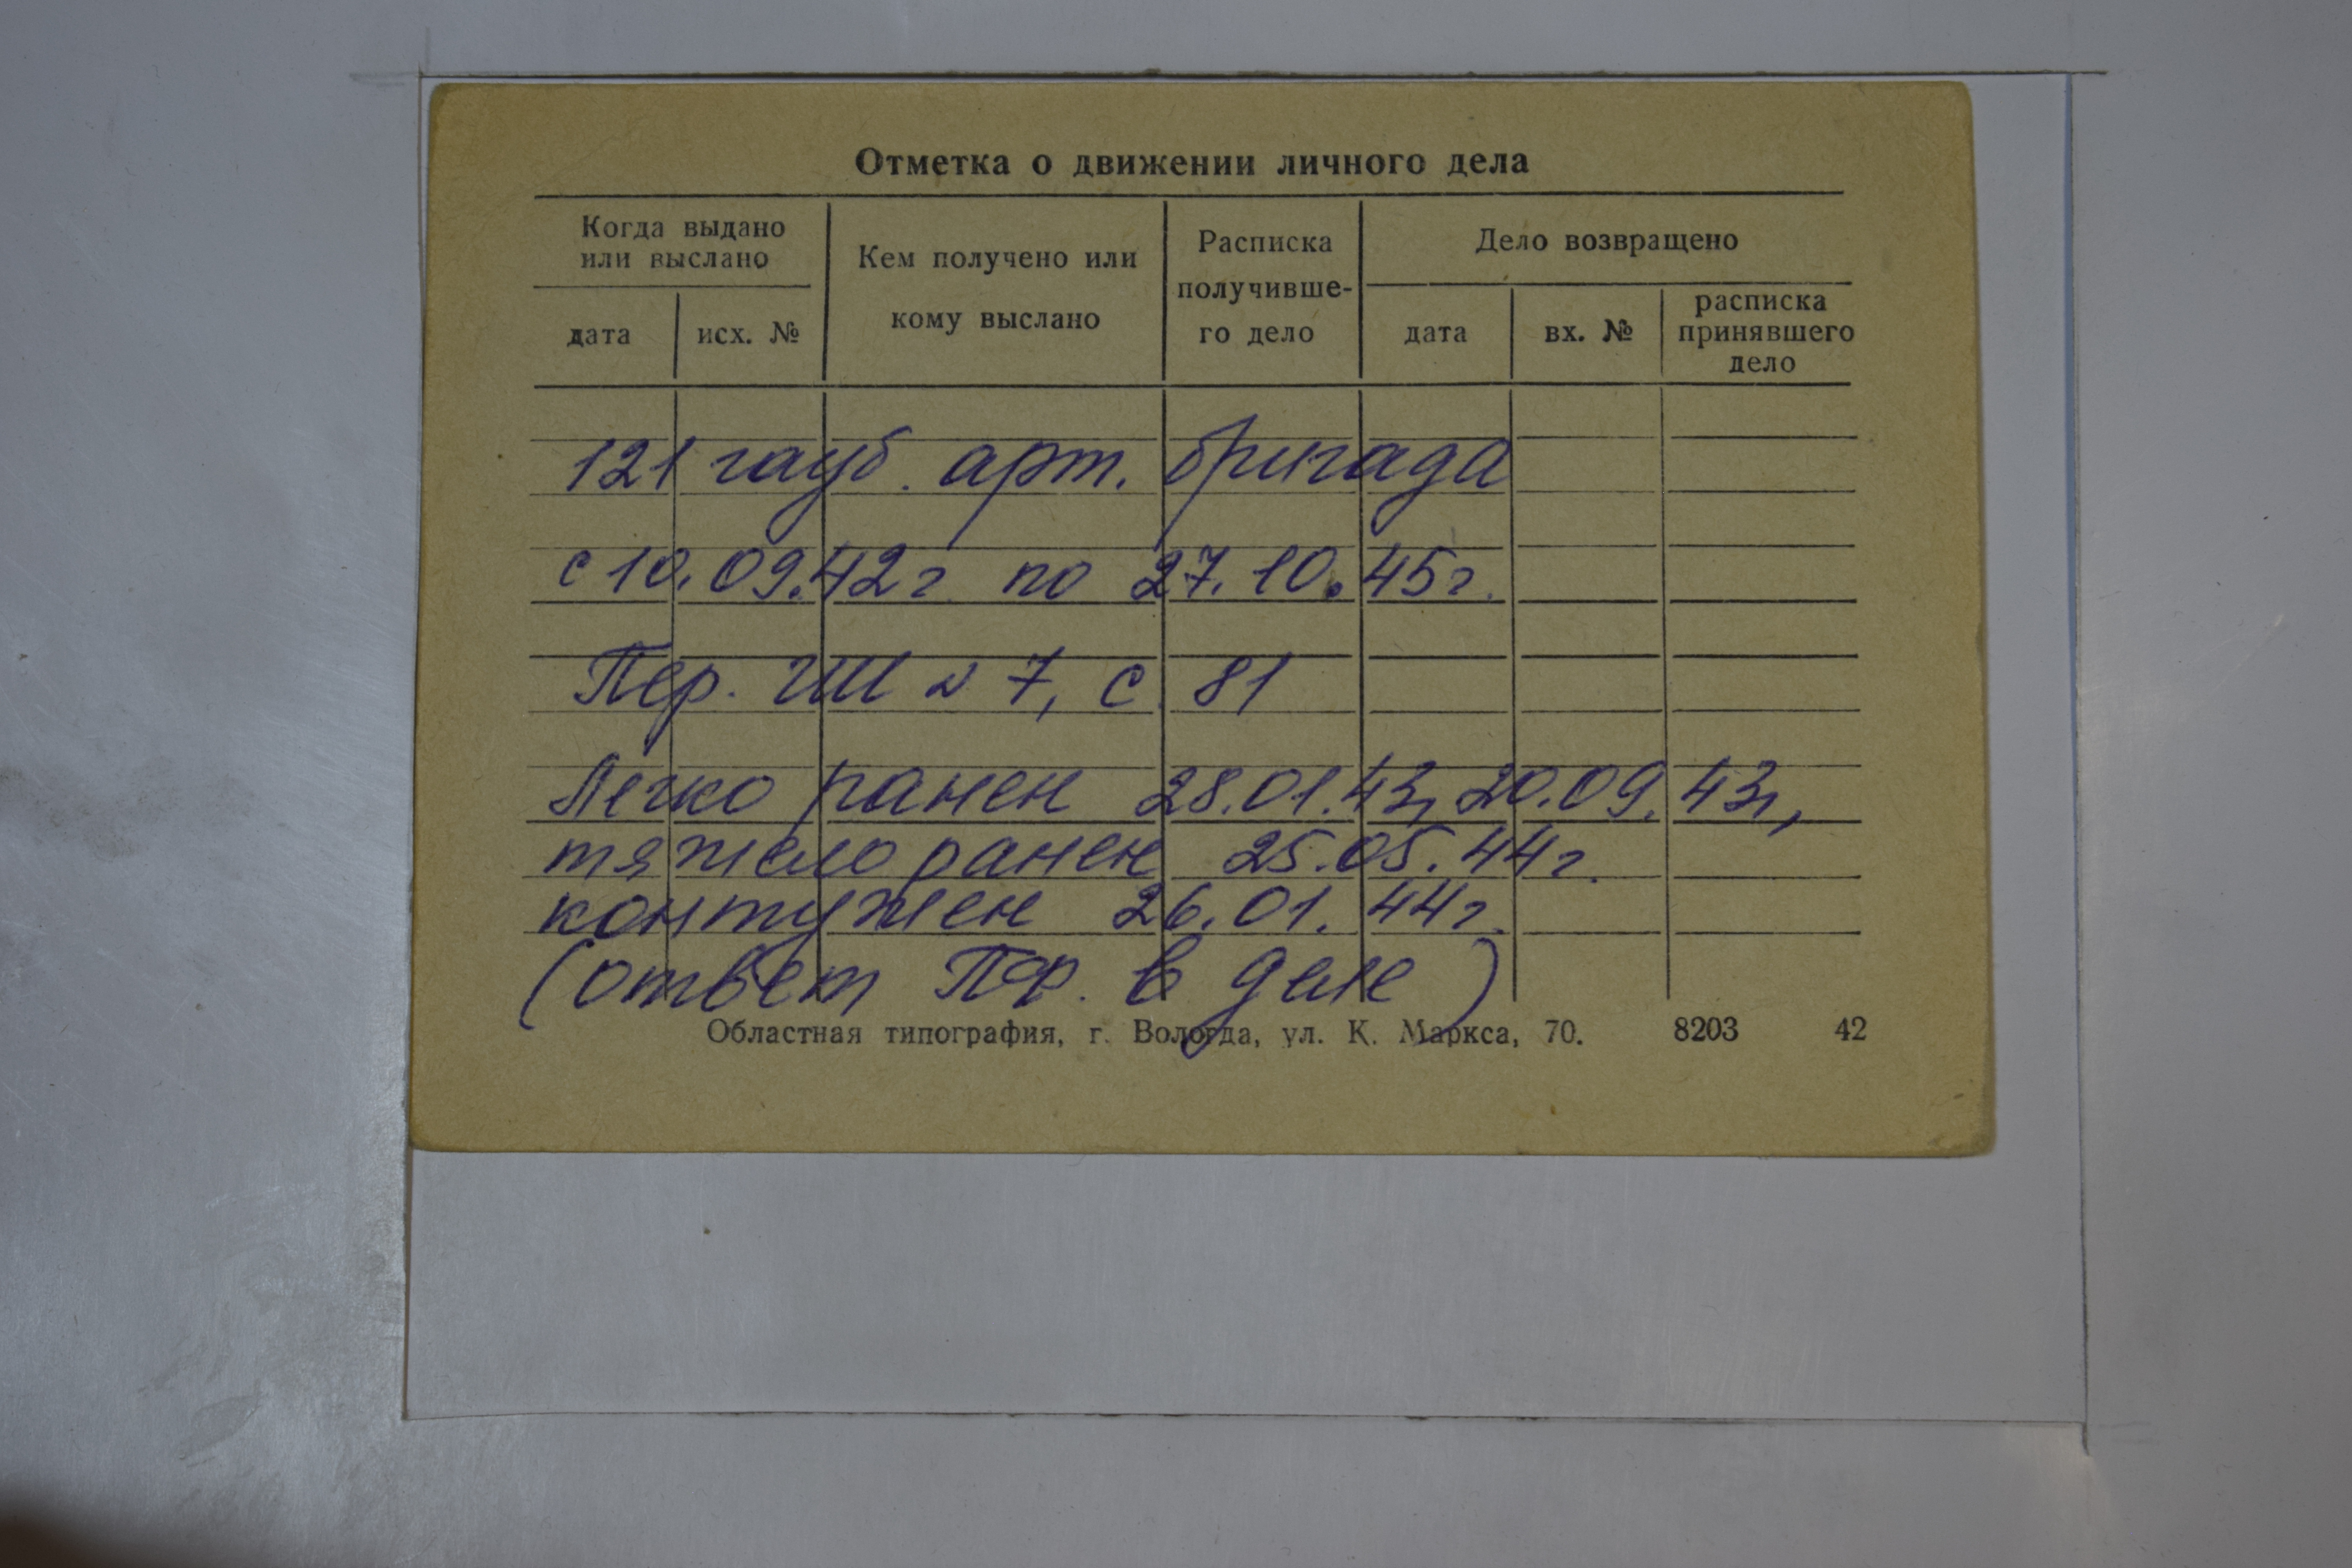 Отметка о движении личного дела
Когда выдано
или выслано
дата
исх. №
Кем получено или
кому выслано
Расписка
получивше-
го дело
Дело возвращено
дата
вх. №
расписка
принявшего
дело
121 гауб. арт. бригада
с 10.09.42г по 27.10.45г.
Пер. ГШ № 7, с 81
Легко ранен 28.01.43г, 20.09.43г,
тяжело ранен 25.05.44г.
контужен 26.01.44г.
(ответ в деле)
Областная типография, г. Вологда, ул. К. Маркса, 70. 8203 42